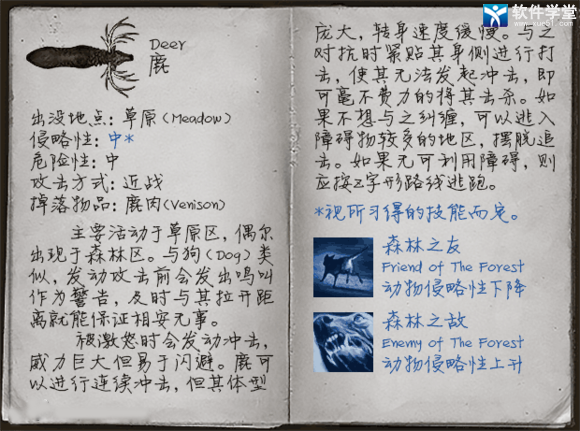 Deer
鹿
出没地点: 草原(Meadow)
侵略性: 中*
危险性: 中
攻击方式: 近战
掉落物品: 鹿肉(Venison)
主要活动于草原区，偶尔
出现于森林区。与狗(Dog)类
似，发动攻击前会发出鸣叫
作为警告，及时与其拉开距
离就能保证相安无事。
被激怒时会发动冲击，
威力巨大但易于闪避。鹿可
以进行连续冲击，但其体型
软件学堂
www.xue51.com
庞大，转身速度缓慢。与之
对抗时紧贴其身侧进行打
击，使其无法发起冲击，即
可毫不费力的将其击杀。如
果不想与之纠缠，可以逃入
障碍物较多的地区，摆脱追
击。如果无可利用障碍，则
应按Z字形路线逃跑。
*视所习得的技能而定。
森林之友
Friend of The Forest
动物侵略性下降
森林之敌
Enemy of The Forest
动物侵略性上升